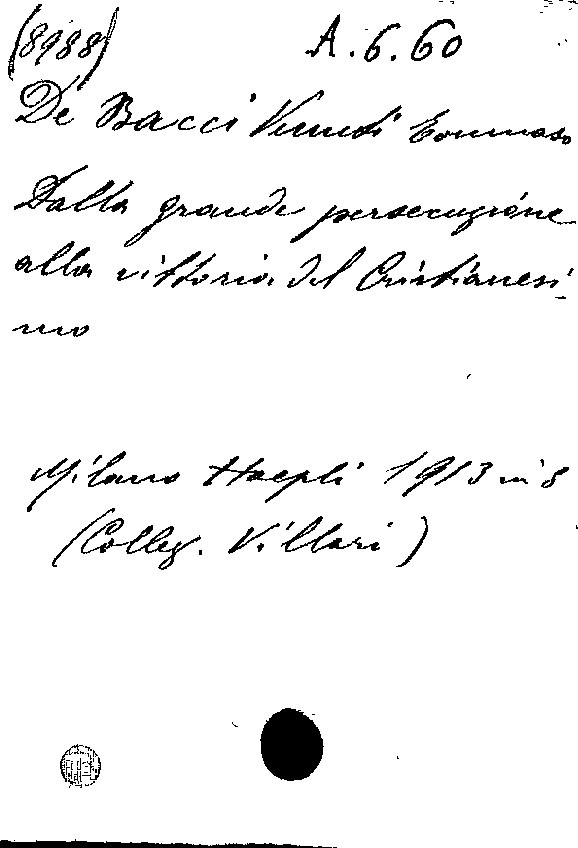 (8988) A.6.60
De Bacci Venuti Tommaso
Dalla grande persecuzione
alla vittoria del Cristianesi-
mo
Milano Hoepli 1913 in 8
(Colleg. Villari)